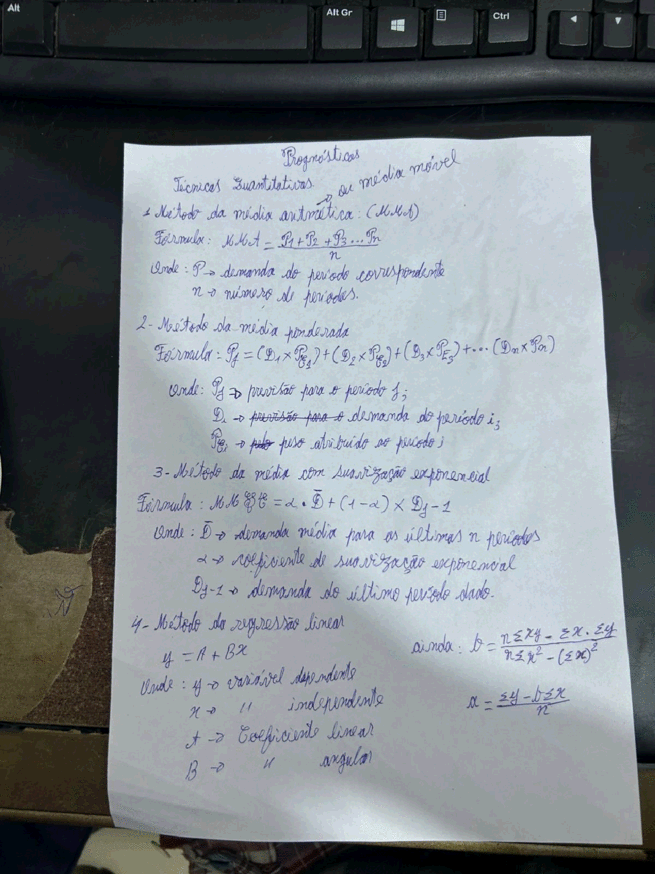 Alt
Alt Gr
Ctrl
Prognósticos
Técnicas Quantitativas
→ ou média móvel
1 Método da média aritmética: (MMA)
Fórmula: MMA = P1 + P2 + P3 ... Pn / n
Onde: P → demanda do período correspondente
n → número de períodos.
2 - Método da média ponderada
Fórmula: Pj = (D1 x PE1) + (D2 x PE2) + (D3 x PE3) + ... (Dn x Pn)
Onde: Pj → previsão para o período j;
Di → previsão para o demanda do período i;
→ peso atribuído ao período i
3 - Método da média com suavização exponencial
Fórmula: MM = α . D̄ + (1 - α) x Dj - 1
Onde: D̄ → demanda média para as últimas n períodos
α → coeficiente de suavização exponencial
Dj - 1 → demanda do último período dado.
4 - Método da regressão linear
y = A + Bx
ainda: b = nΣxy - Σx . Σy / nΣx² - (Σx)²
Onde: y → variável dependente
x → " independente
a = Σy - bΣx / n
A → Coeficiente linear
B → " angular